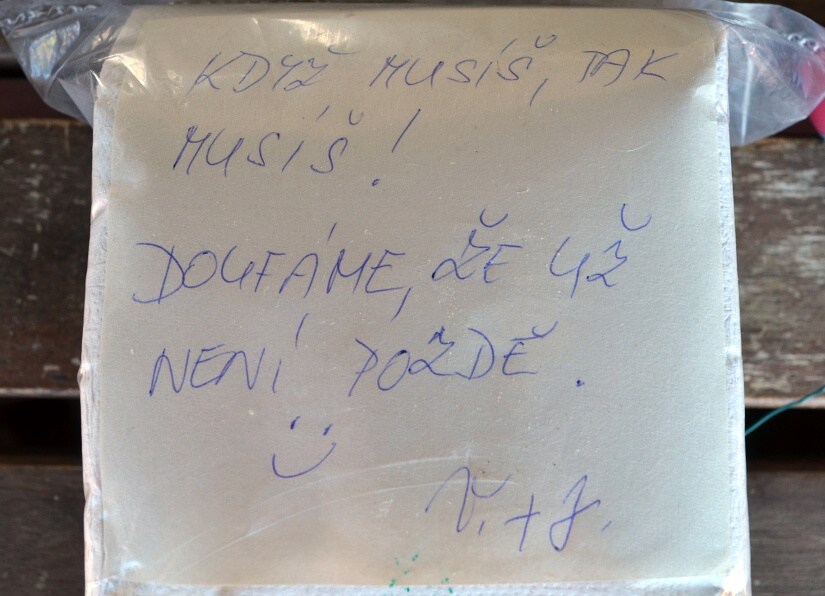 KDYŽ MUSÍŠ, TAK
MUSÍŠ!
DOUFÁME, ŽE UŽ
NENÍ POŽDĚ.
V. + J.